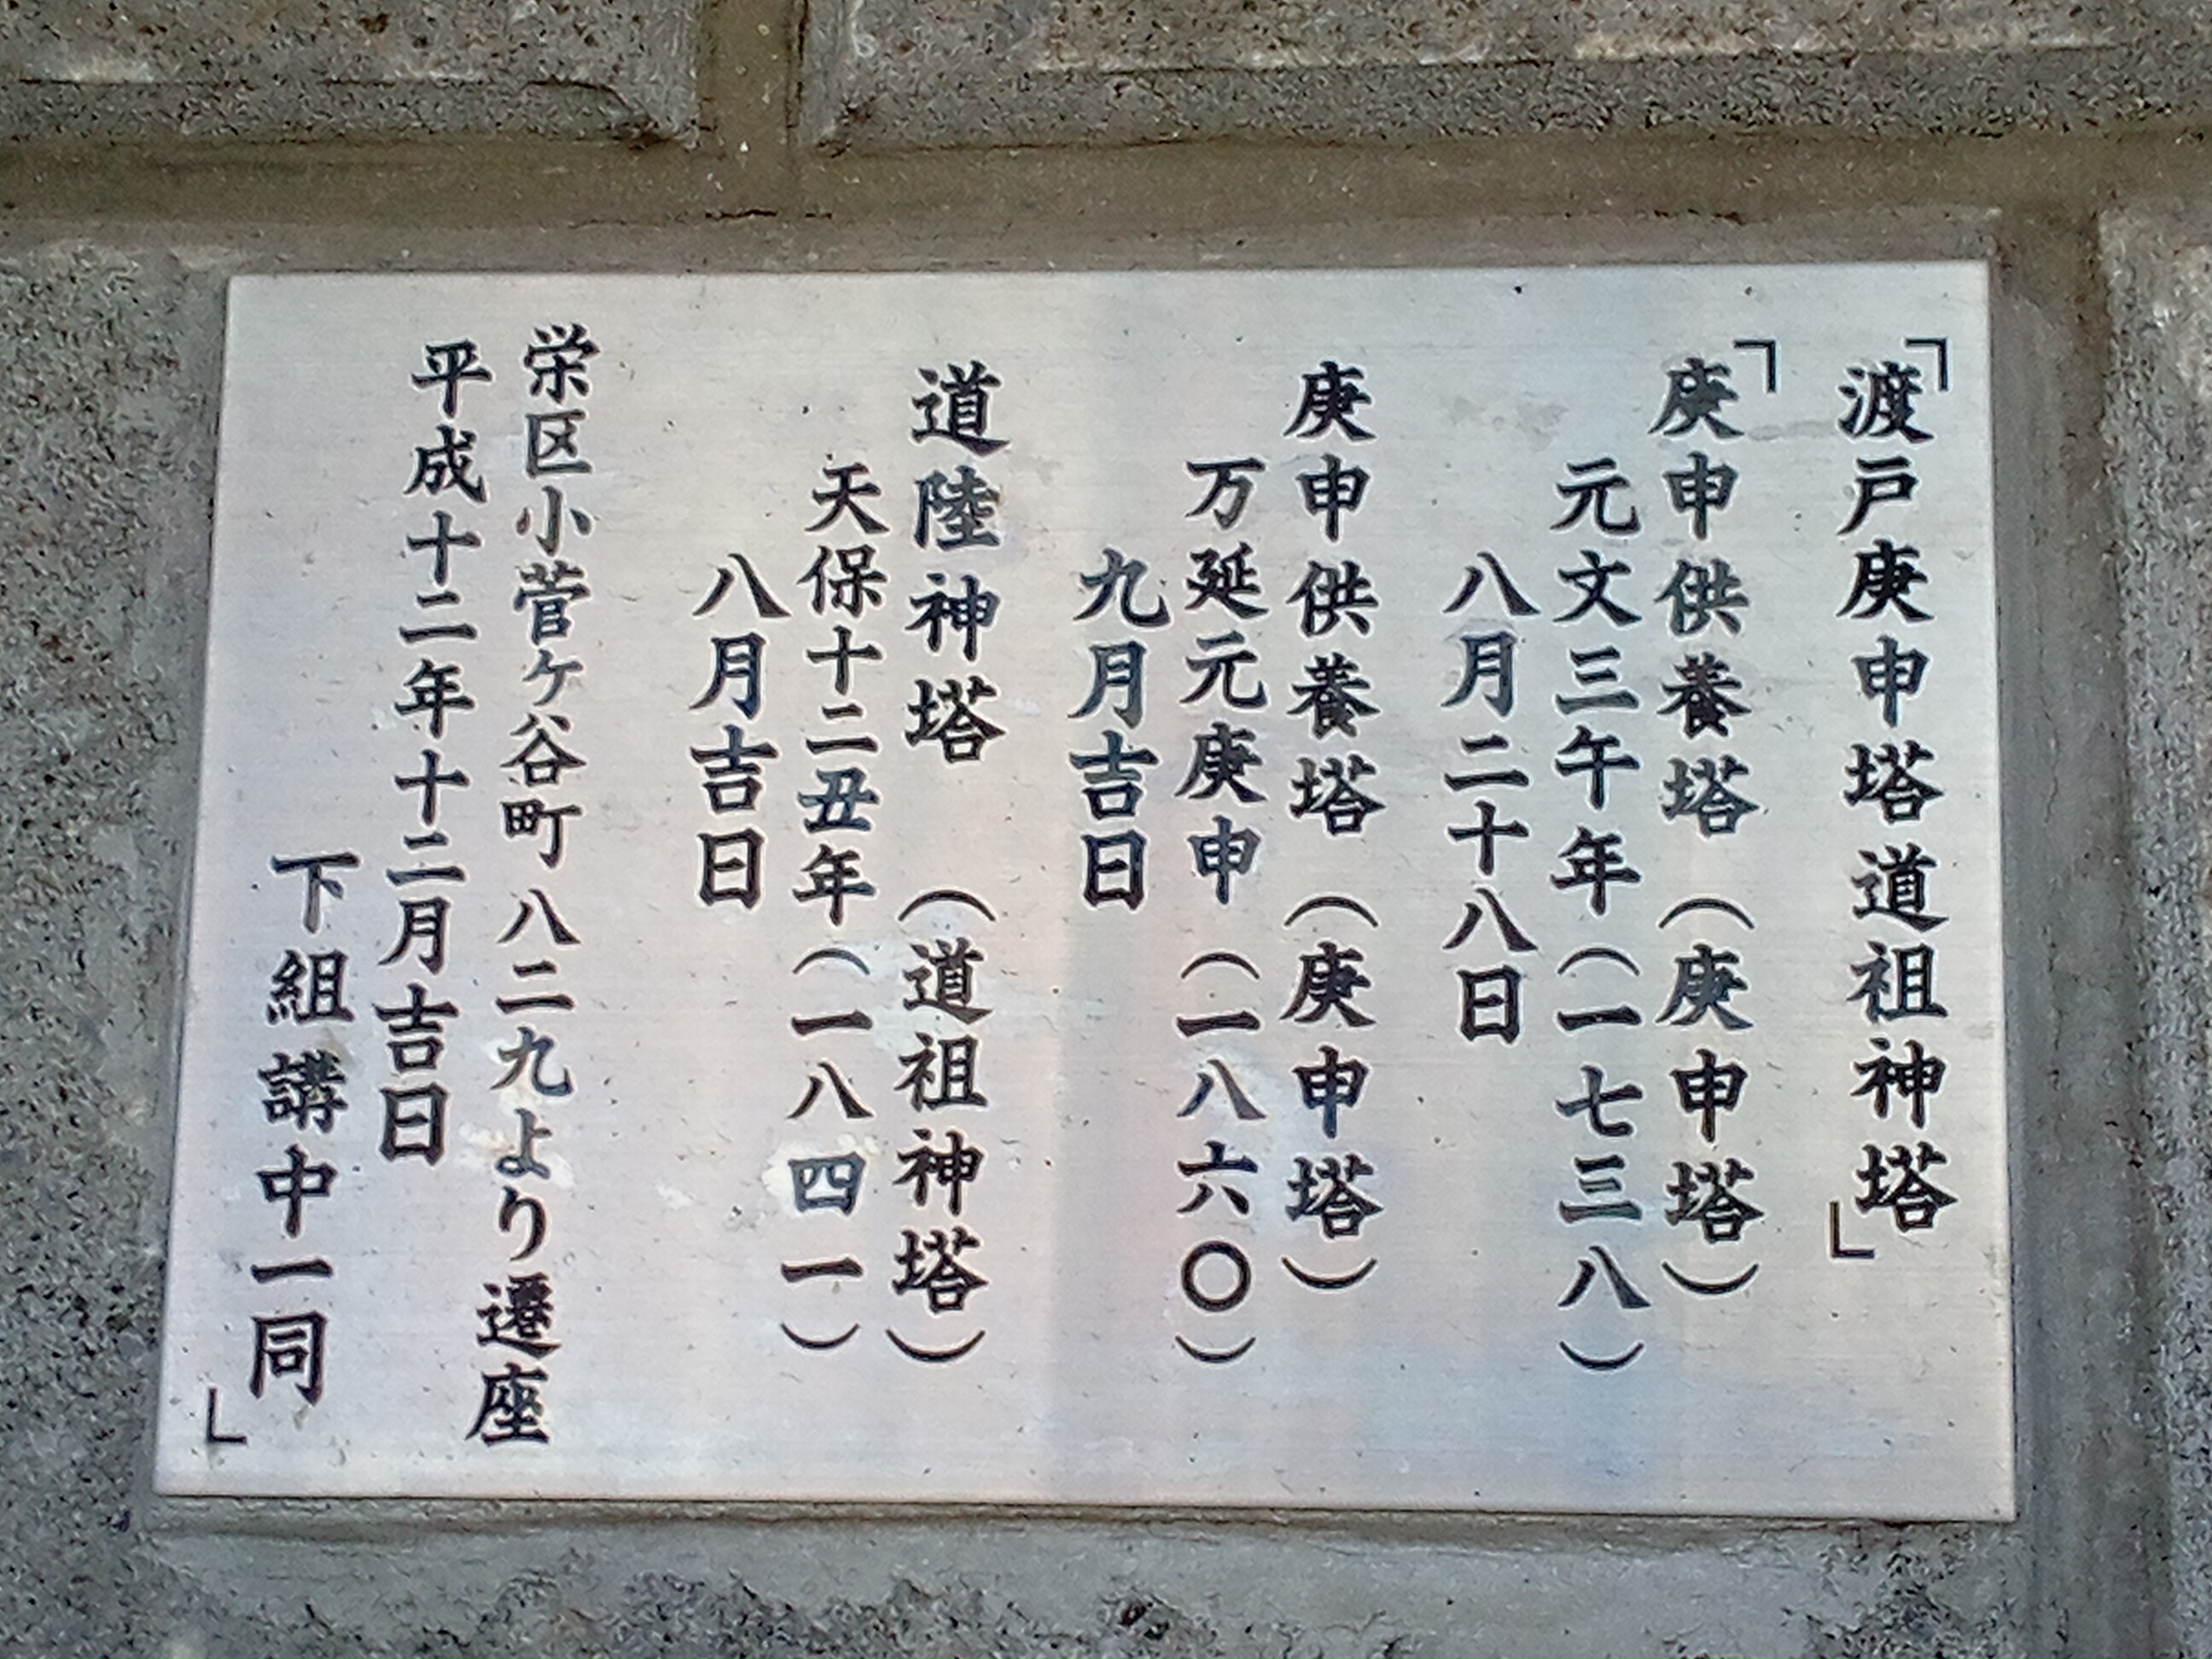 「渡戸庚申塔道祖神塔」
「庚申供養塔（庚申塔）
元文三午年（一七三八）
八月二十八日
庚申供養塔（庚申塔）
万延元庚申（一八六〇）
九月吉日
道陸神塔（道祖神塔）
天保十二丑年（一八四一）
八月吉日
栄区小菅ケ谷町八二九より遷座
平成十二年十二月吉日
下組講中一同」